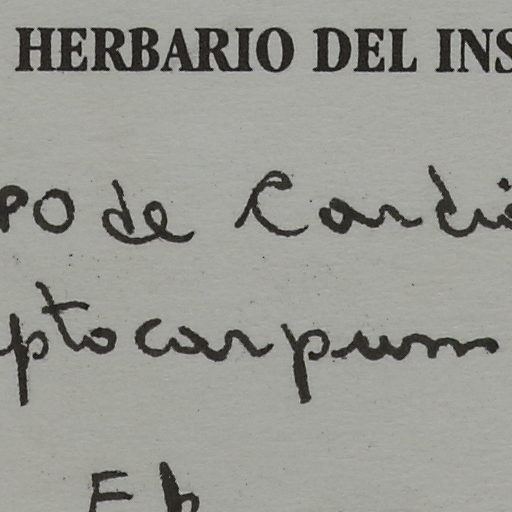 HERBARIO DEL INS
PO de Cardio
ptocarpum